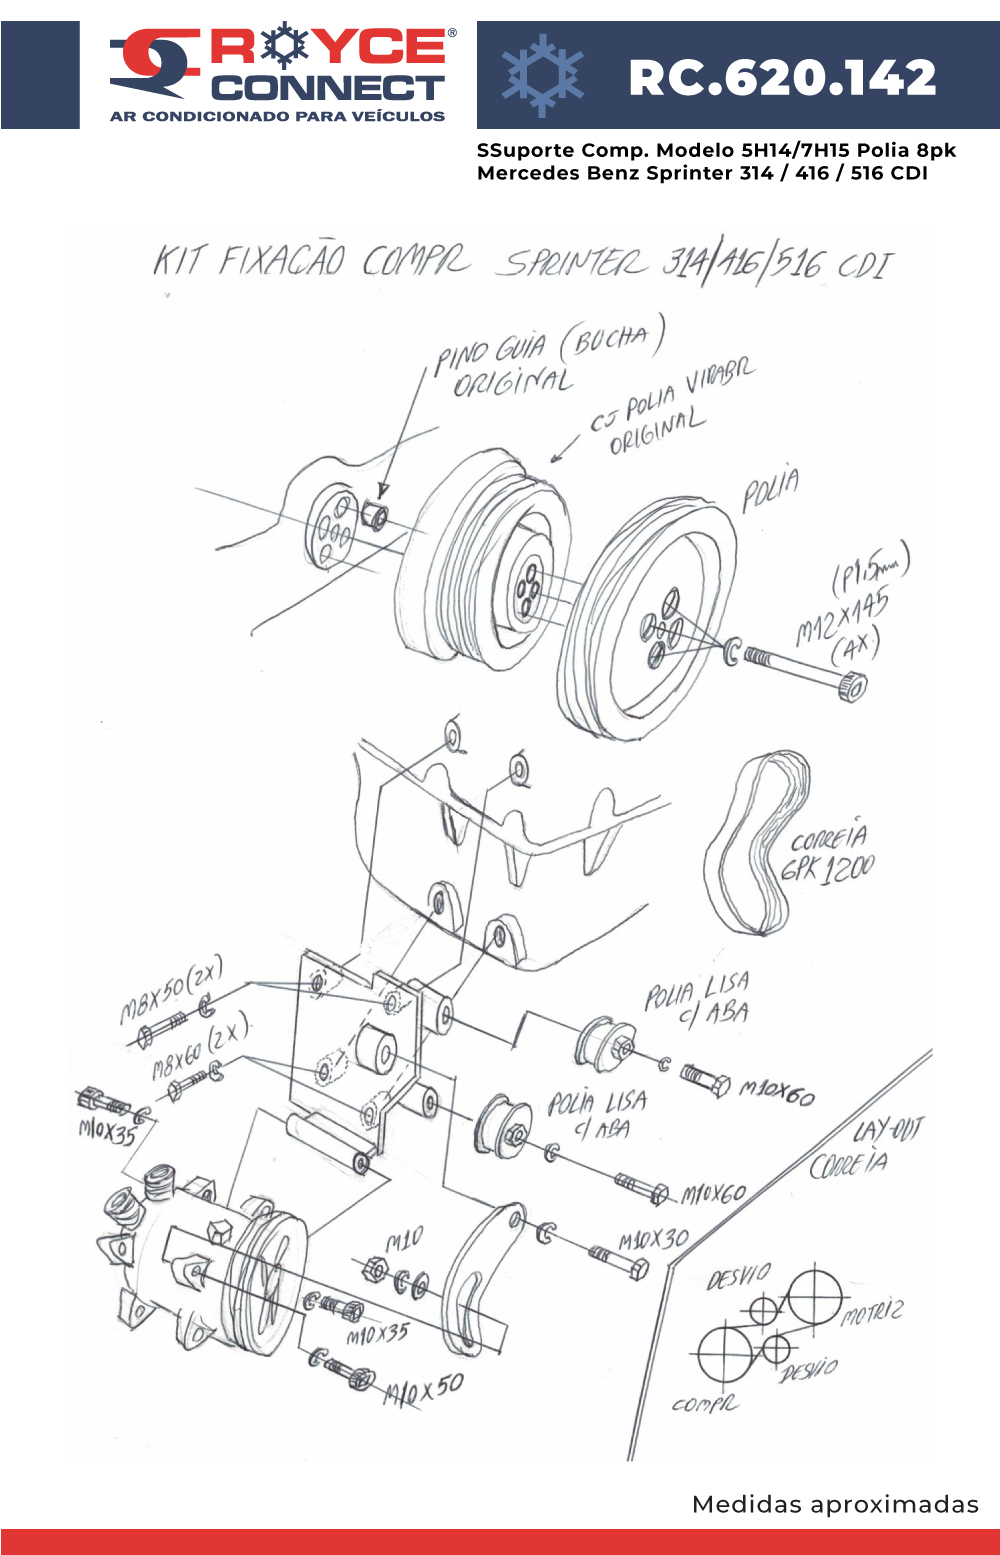 ROYCE®
CONNECT
AR CONDICIONADO PARA VEÍCULOS
RC.620.142
SSuporte Comp. Modelo 5H14/7H15 Polia 8pk
Mercedes Benz Sprinter 314 / 416 / 516 CDI
KIT FIXAÇÃO COMPR SPRINTER 314/416/516 CDI
PINO GUIA (BUCHA)
ORIGINAL
CJ POLIA VIRABR
ORIGINAL
POLIA
(P1,5mm)
M12X145
(4X)
CORREIA
6PK 1200
M8X50 (2X)
M8X60 (2X)
M10X35
POLIA LISA
C/ ABA
M10X60
POLIA LISA
C/ ABA
M10X60
M10X30
M10
M10X35
M10X50
LAY-OUT
CORREIA
DESVIO
MOTRIZ
DESVIO
COMPR
Medidas aproximadas